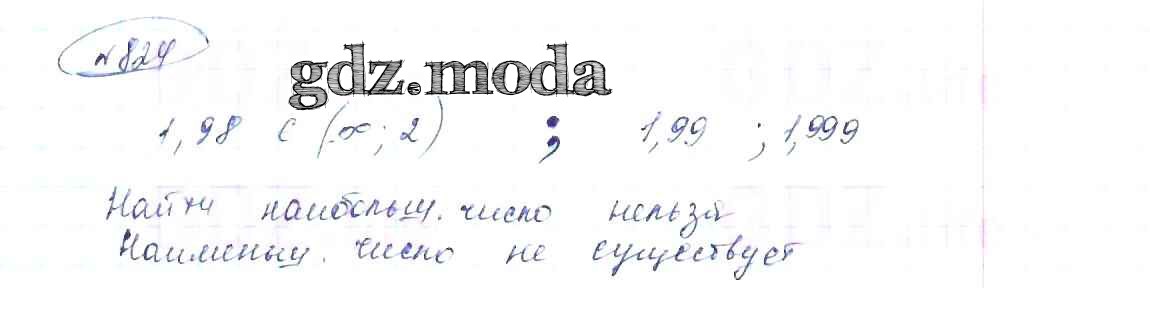 № 824
gdz.moda
1,98 ∈ (-∞; 2) ; 1,99 ; 1,999
Найти наибольш. число нельзя
Наименьш. число не существует